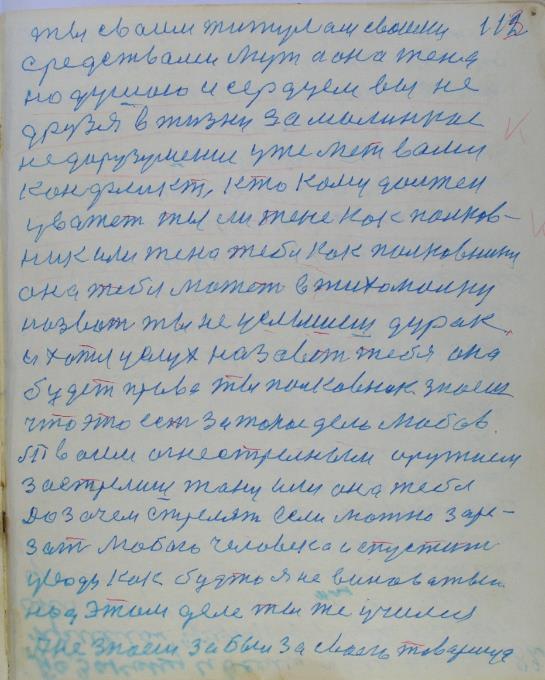 112
ты своим титулам своими
средствами муж а она жена
но душою и сердцем вы не
друзя в жизни за малинкое
недорузумение уже мет вами
конфликт, кто кому должен
уважет ты ли жене как полков-
ник или жена тебя как полковнику
она тебя может втихомолку
назват ты не услышиш дурак,
и хотя услух назавот тебя она
будет права ты полковник знаеш
что это ест за такое дело любов.
Твоим огнестрелным оружием
застрелиш жану или она тебя
До зачем стрелят если можно заре-
зат любого человека и спустит
уводу как будто я не виноватый
над этом деле ты же учился
Не знаеш забыл за своего товарища